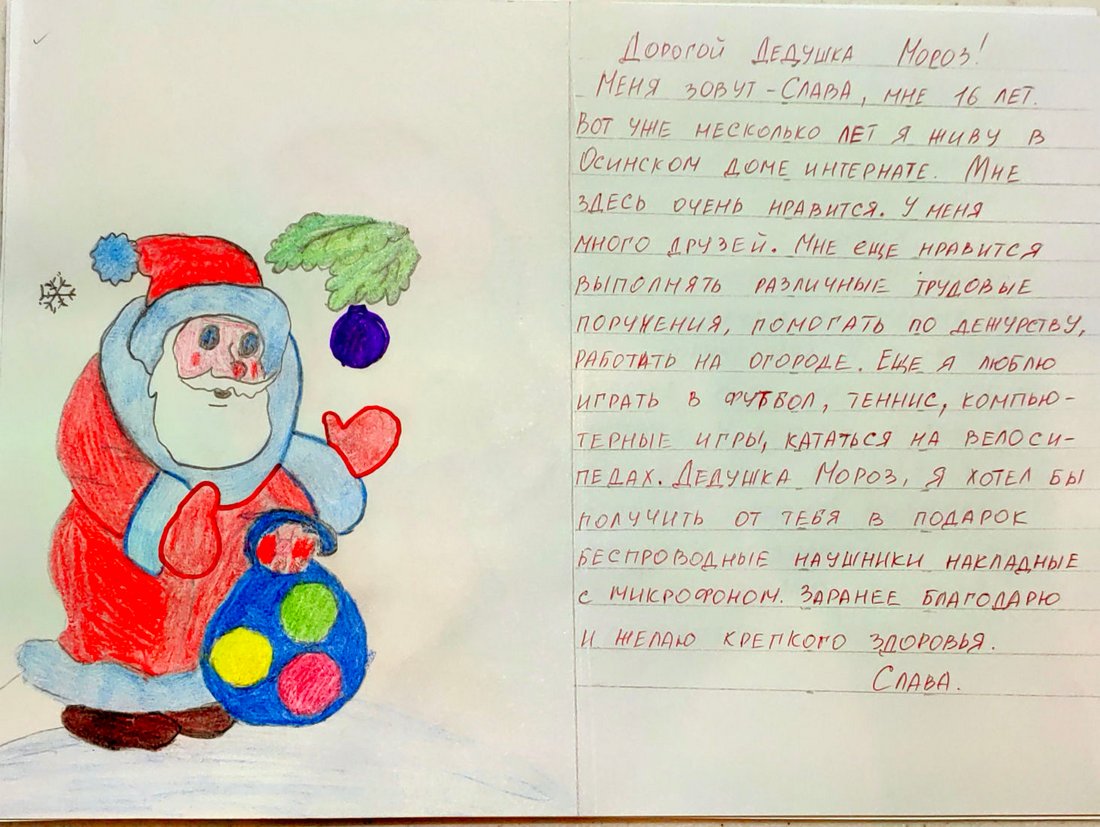 Дорогой Дедушка Мороз!
Меня зовут - Слава, мне 16 лет.
Вот уже несколько лет я живу в
Осинском доме интернате. Мне
здесь очень нравится. У меня
много друзей. Мне еще нравится
выполнять различные трудовые
поручения, помогать по дежурству,
работать на огороде. Еще я люблю
играть в футбол, теннис, компью-
терные игры, кататься на велоси-
педах. Дедушка Мороз, я хотел бы
получить от тебя в подарок
беспроводные наушники накладные
с микрофоном. Заранее благодарю
и желаю крепкого здоровья.
Слава.